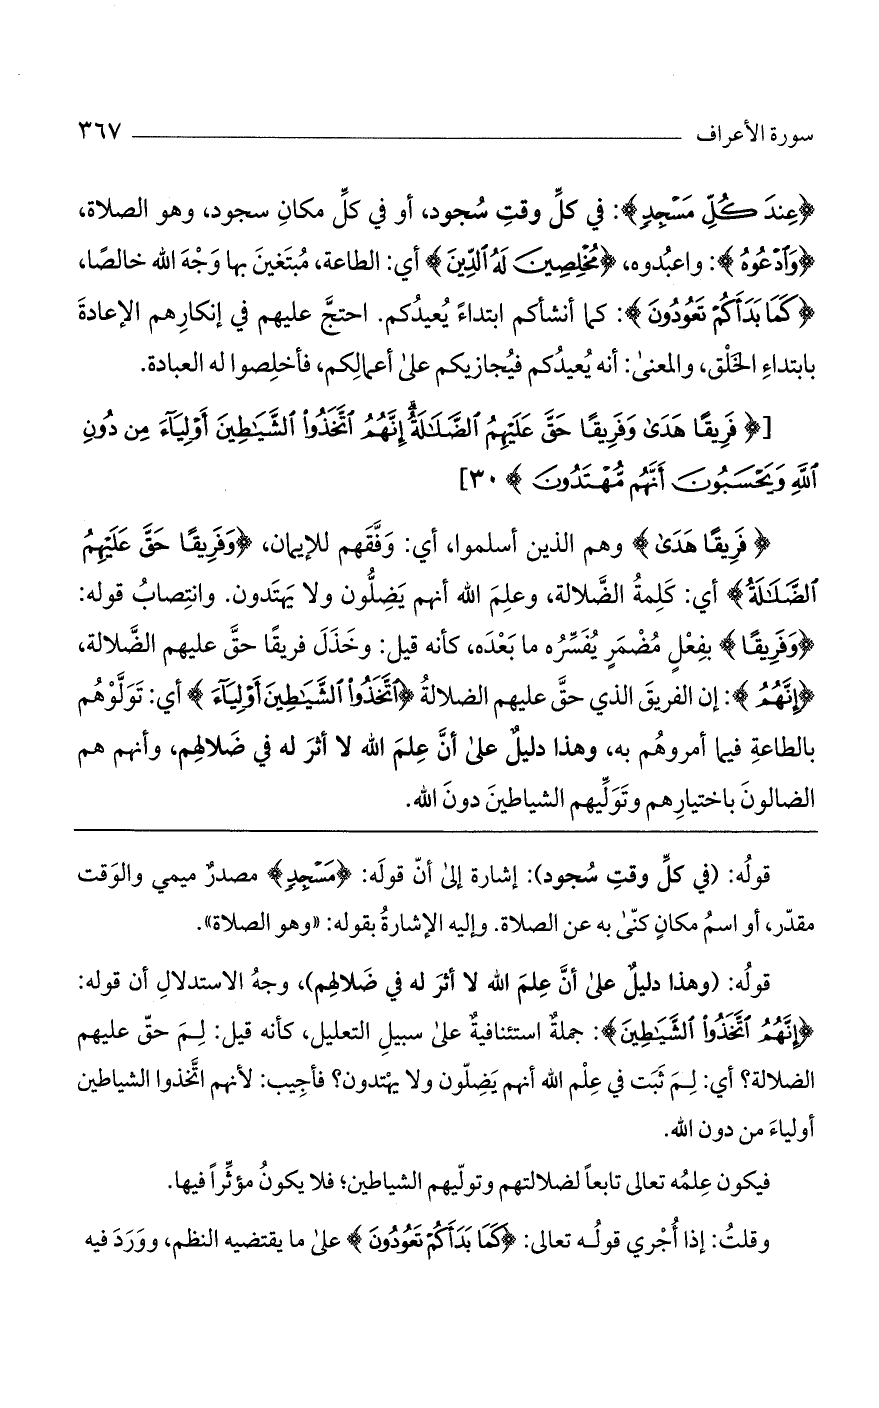 سورة الأعراف ٣٦٧
﴿عِندَ كُلِّ مَسْجِدٍ﴾: في كلِّ وقتِ سُجود، أو في كلِّ مكانِ سجود، وهو الصلاة،
﴿وَٱدْعُوهُ﴾: واعبُدوه، ﴿مُخْلِصِينَ لَهُ ٱلدِّينَ﴾ أي: الطاعة، مُبتَغينَ بها وَجْهَ الله خالصًا،
﴿كَمَا بَدَأَكُمْ تَعُودُونَ﴾: كما أنشأكم ابتداءً يُعيدُكم. احتجَّ عليهم في إنكارِهم الإعادةَ
بابتداءِ الخَلْق، والمعنىٰ: أنه يُعيدُكم فيُجازيكم علىٰ أعمالِكم، فأخلِصوا له العبادة.
[﴿فَرِيقًا هَدَىٰ وَفَرِيقًا حَقَّ عَلَيْهِمُ ٱلضَّلَٰلَةُ ۗ إِنَّهُمُ ٱتَّخَذُوا۟ ٱلشَّيَٰطِينَ أَوْلِيَآءَ مِن دُونِ
ٱللَّهِ وَيَحْسَبُونَ أَنَّهُم مُّهْتَدُونَ﴾ ٣٠]
﴿فَرِيقًا هَدَىٰ﴾ وهم الذين أسلموا، أي: وَفَّقَهم للإيمان، ﴿وَفَرِيقًا حَقَّ عَلَيْهِمُ
ٱلضَّلَٰلَةُ﴾ أي: كَلِمةُ الضَّلالة، وعلِمَ الله أنهم يَضِلُّون ولا يَهتَدون. وانتِصابُ قوله:
﴿وَفَرِيقًا﴾ بفِعْلٍ مُضْمَرٍ يُفَسِّرُه ما بَعْدَه، كأنه قيل: وخَذَلَ فريقًا حقَّ عليهم الضَّلالة،
﴿إِنَّهُمُ﴾: إن الفريقَ الذي حقَّ عليهم الضلالةُ ﴿ٱتَّخَذُوا۟ ٱلشَّيَٰطِينَ أَوْلِيَآءَ﴾ أي: تَوَلَّوْهُم
بالطاعةِ فيما أمروهُم به، وهذا دليلٌ علىٰ أنَّ عِلمَ الله لا أثرَ له في ضَلالهِم، وأنهم هم
الضالونَ باختيارِهم وتَوَلِّيهم الشياطينَ دونَ الله.
قولُه: (في كلِّ وقتِ سُجود): إشارة إلىٰ أنّ قولَه: ﴿مَسْجِدٍ﴾ مصدرٌ ميمي والوَقت
مقدّر، أو اسمُ مكانٍ كنّىٰ به عن الصلاة. وإليه الإشارةُ بقوله: «وهو الصلاة».
قولُه: (وهذا دليلٌ علىٰ أنَّ عِلمَ الله لا أثرَ له في ضَلالهِم)، وجهُ الاستدلالِ أن قوله:
﴿إِنَّهُمُ ٱتَّخَذُوا۟ ٱلشَّيَٰطِينَ﴾: جملةٌ استئنافيةٌ علىٰ سبيلِ التعليل، كأنه قيل: لِمَ حقّ عليهم
الضلالة؟ أي: لِمَ ثَبَت في عِلْم الله أنهم يَضِلّون ولا يهْتدون؟ فأجِيب: لأنهم اتَّخذوا الشياطين
أولياءَ من دون الله.
فيكون عِلمُه تعالى تابعاً لضلالتهم وتولّيهم الشياطين؛ فلا يكونُ مؤثِّراً فيها.
وقلتُ: إذا أُجْري قولُه تعالى: ﴿كَمَا بَدَأَكُمْ تَعُودُونَ﴾ علىٰ ما يقتضيه النظم، ووَرَدَ فيه